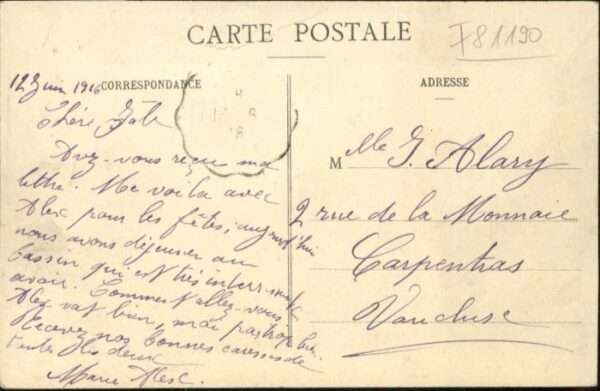 CARTE POSTALE
F81190
CORRESPONDANCE
ADRESSE
12 Juin 1916
Chère
Avez-vous reçu ma
lettre. Me voila avec
Alex pour les fêtes; aujourd'hui
nous avons déjeuner au
bassin, qui est très
avoir. Comment allez-vous
Alex vat bien, moi pas trop bien.
Recevez nos bonnes caresses de
toutes les deux
Marie Alex.
M lle G. Alary
2 rue de la Monnaie
Carpentras
Vaucluse